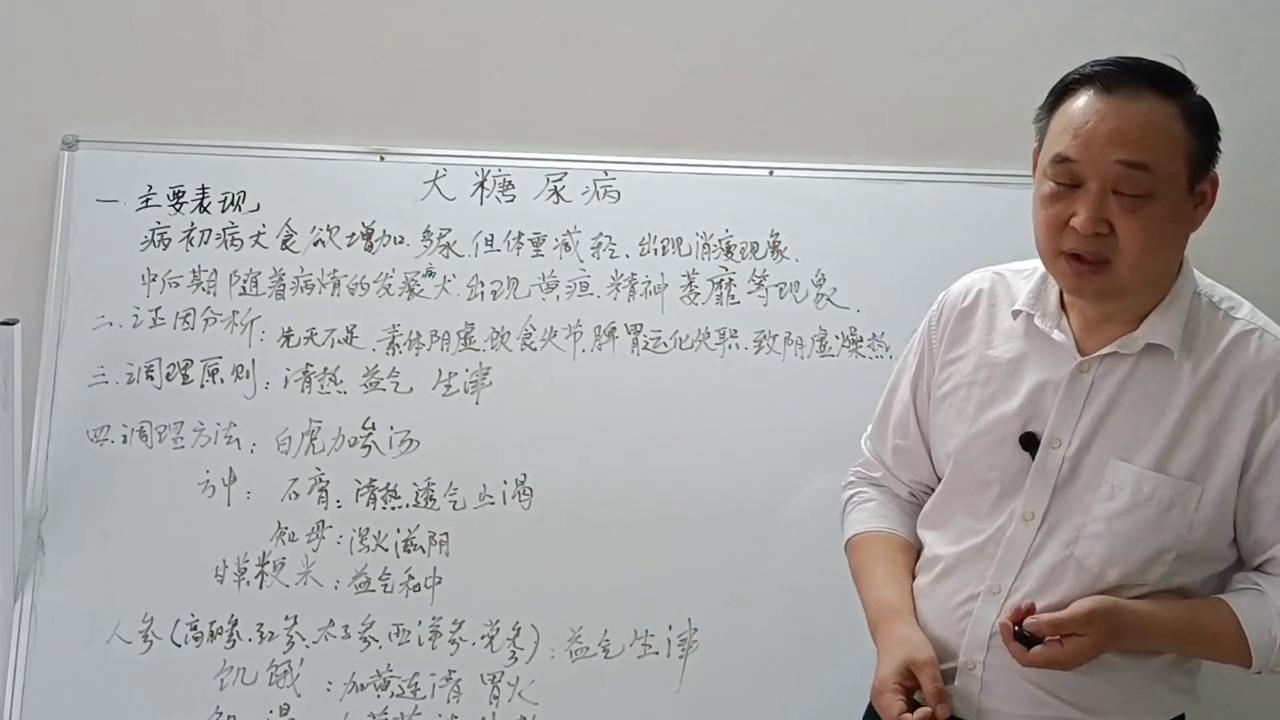 犬糖尿病
一.主要表现
病初病犬食欲增加.多尿.但体重减轻.出现消瘦现象.
中后期随着病情的发展病犬.出现黄疸.精神萎靡等现象.
二.证因分析:先天不足.素体阴虚.饮食失节.脾胃运化失职.致阴虚燥热.
三.调理原则:清热 益气 生津
四.调理方法:白虎加参汤
方中:石膏:清热.透气止渴
知母:泻火滋阴
甘草.粳米:益气和中
人参(高丽参.红参.太子参.西洋参.党参):益气生津
饥饿:加黄连清胃火